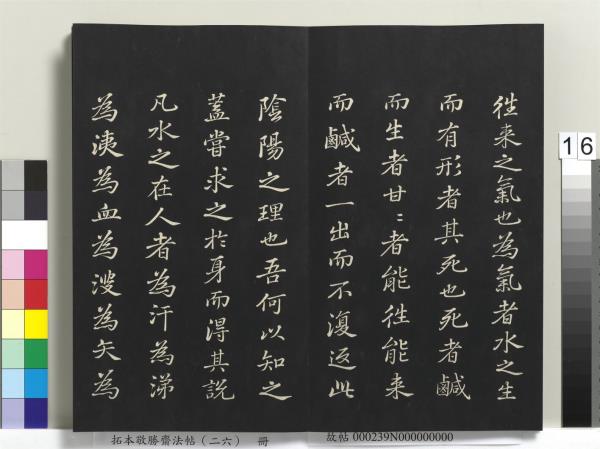 徃来之氣也為氣者水之生
而有形者其死也死者鹹
而生者甘甘者能徃能来
而鹹者一出而不復返此
陰陽之理也吾何以知之
蓋嘗求之於身而得其説
凡水之在人者為汗為涕
為洟為血為溲為矢為
拓本敬勝齋法帖(二六) 冊
故帖 000239N000000000
16